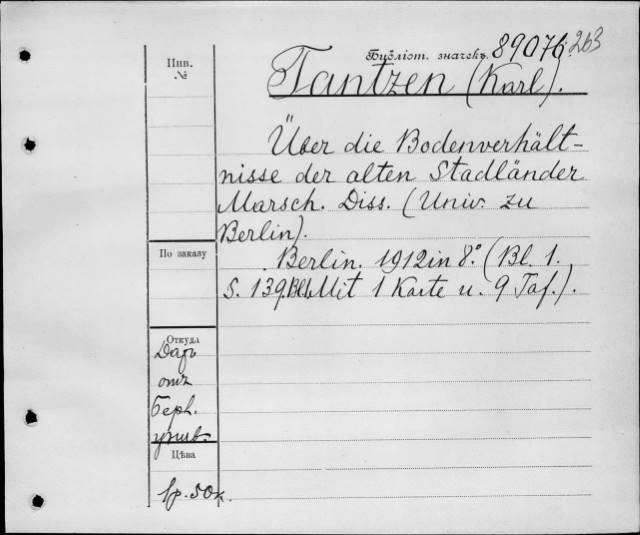 Инв.
№
Библіот. значекъ. 89076. 263
Tantzen (Karl).
Über die Bodenverhält-
nisse der alten Stadländer
Marsch. Diss. (Univ. zu
Berlin).
По заказу
Berlin. 1912 in 8.° (Bl. 1.
S. 139. Bl. 1. Mit 1 Karte u. 9 Taf.).
Откуда
Даръ
отъ
Берл.
унив
Цѣна
1р. 50к.